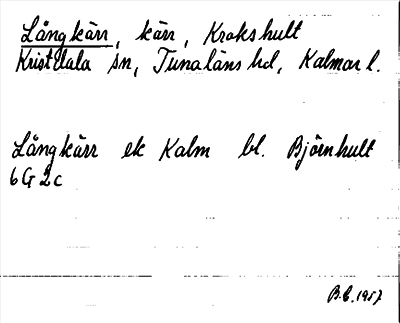 Långkärr, kärr, Krokshult
Kristdala sn, Tunaläns hd, Kalmar l.
Långkärr ek Kalm bl. Björnhult
6G 2c
B.E. 1957